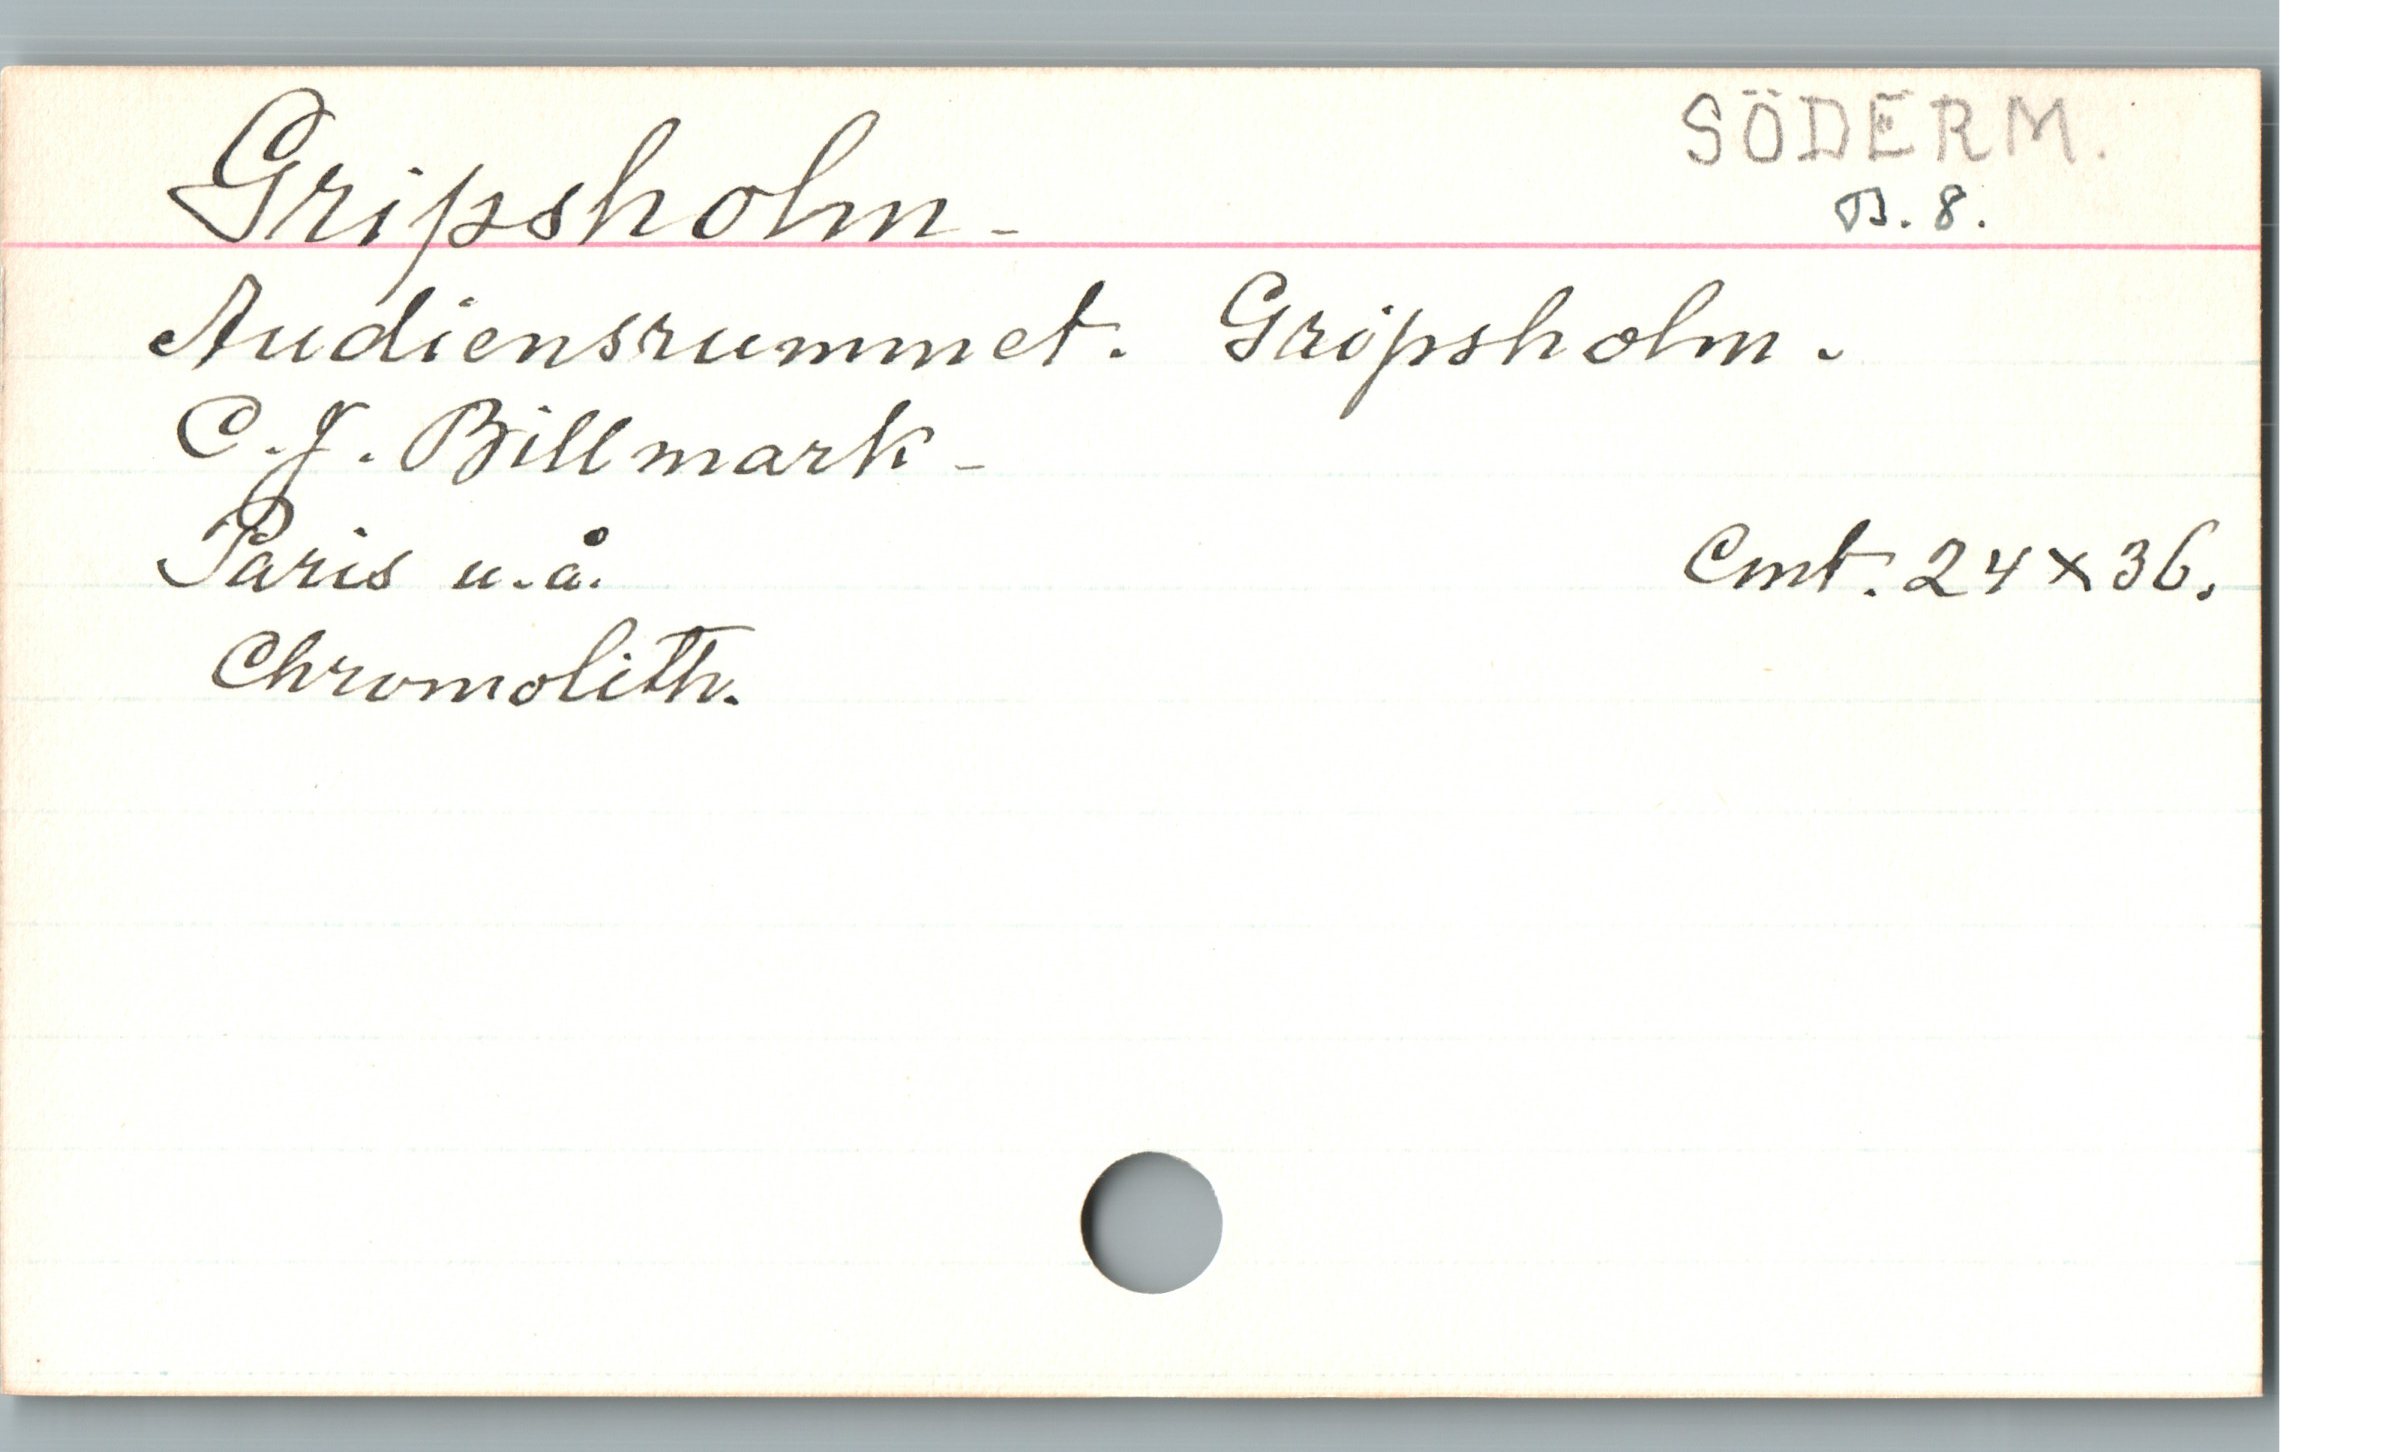 Gripsholm.
SÖDERM.
B. 8.
Audiensrummet. Gripsholm.
C. J. Billmark.
Paris u.å.
Cmt. 24 x 36.
Chromolith.